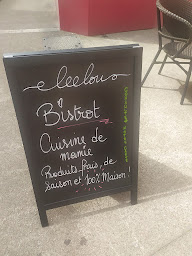 eleelou
Bistrot
Cuisine de
mamie
Produits frais, de
saison et 100% Maison !